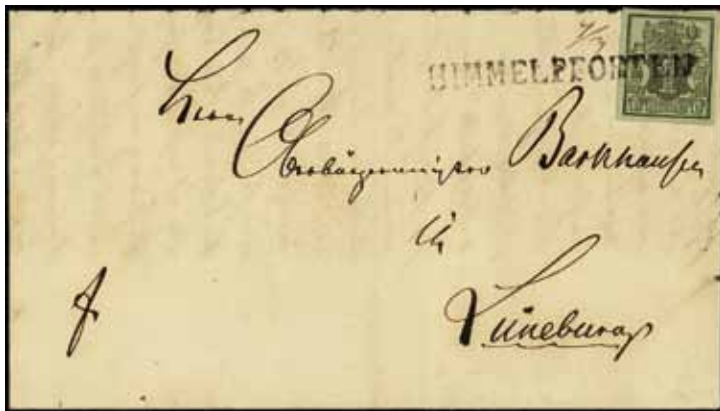 7/3
HIMMELPFORTEN
Herrn
Oberbürgermeister Barkhausen
in
Lüneburg
fr